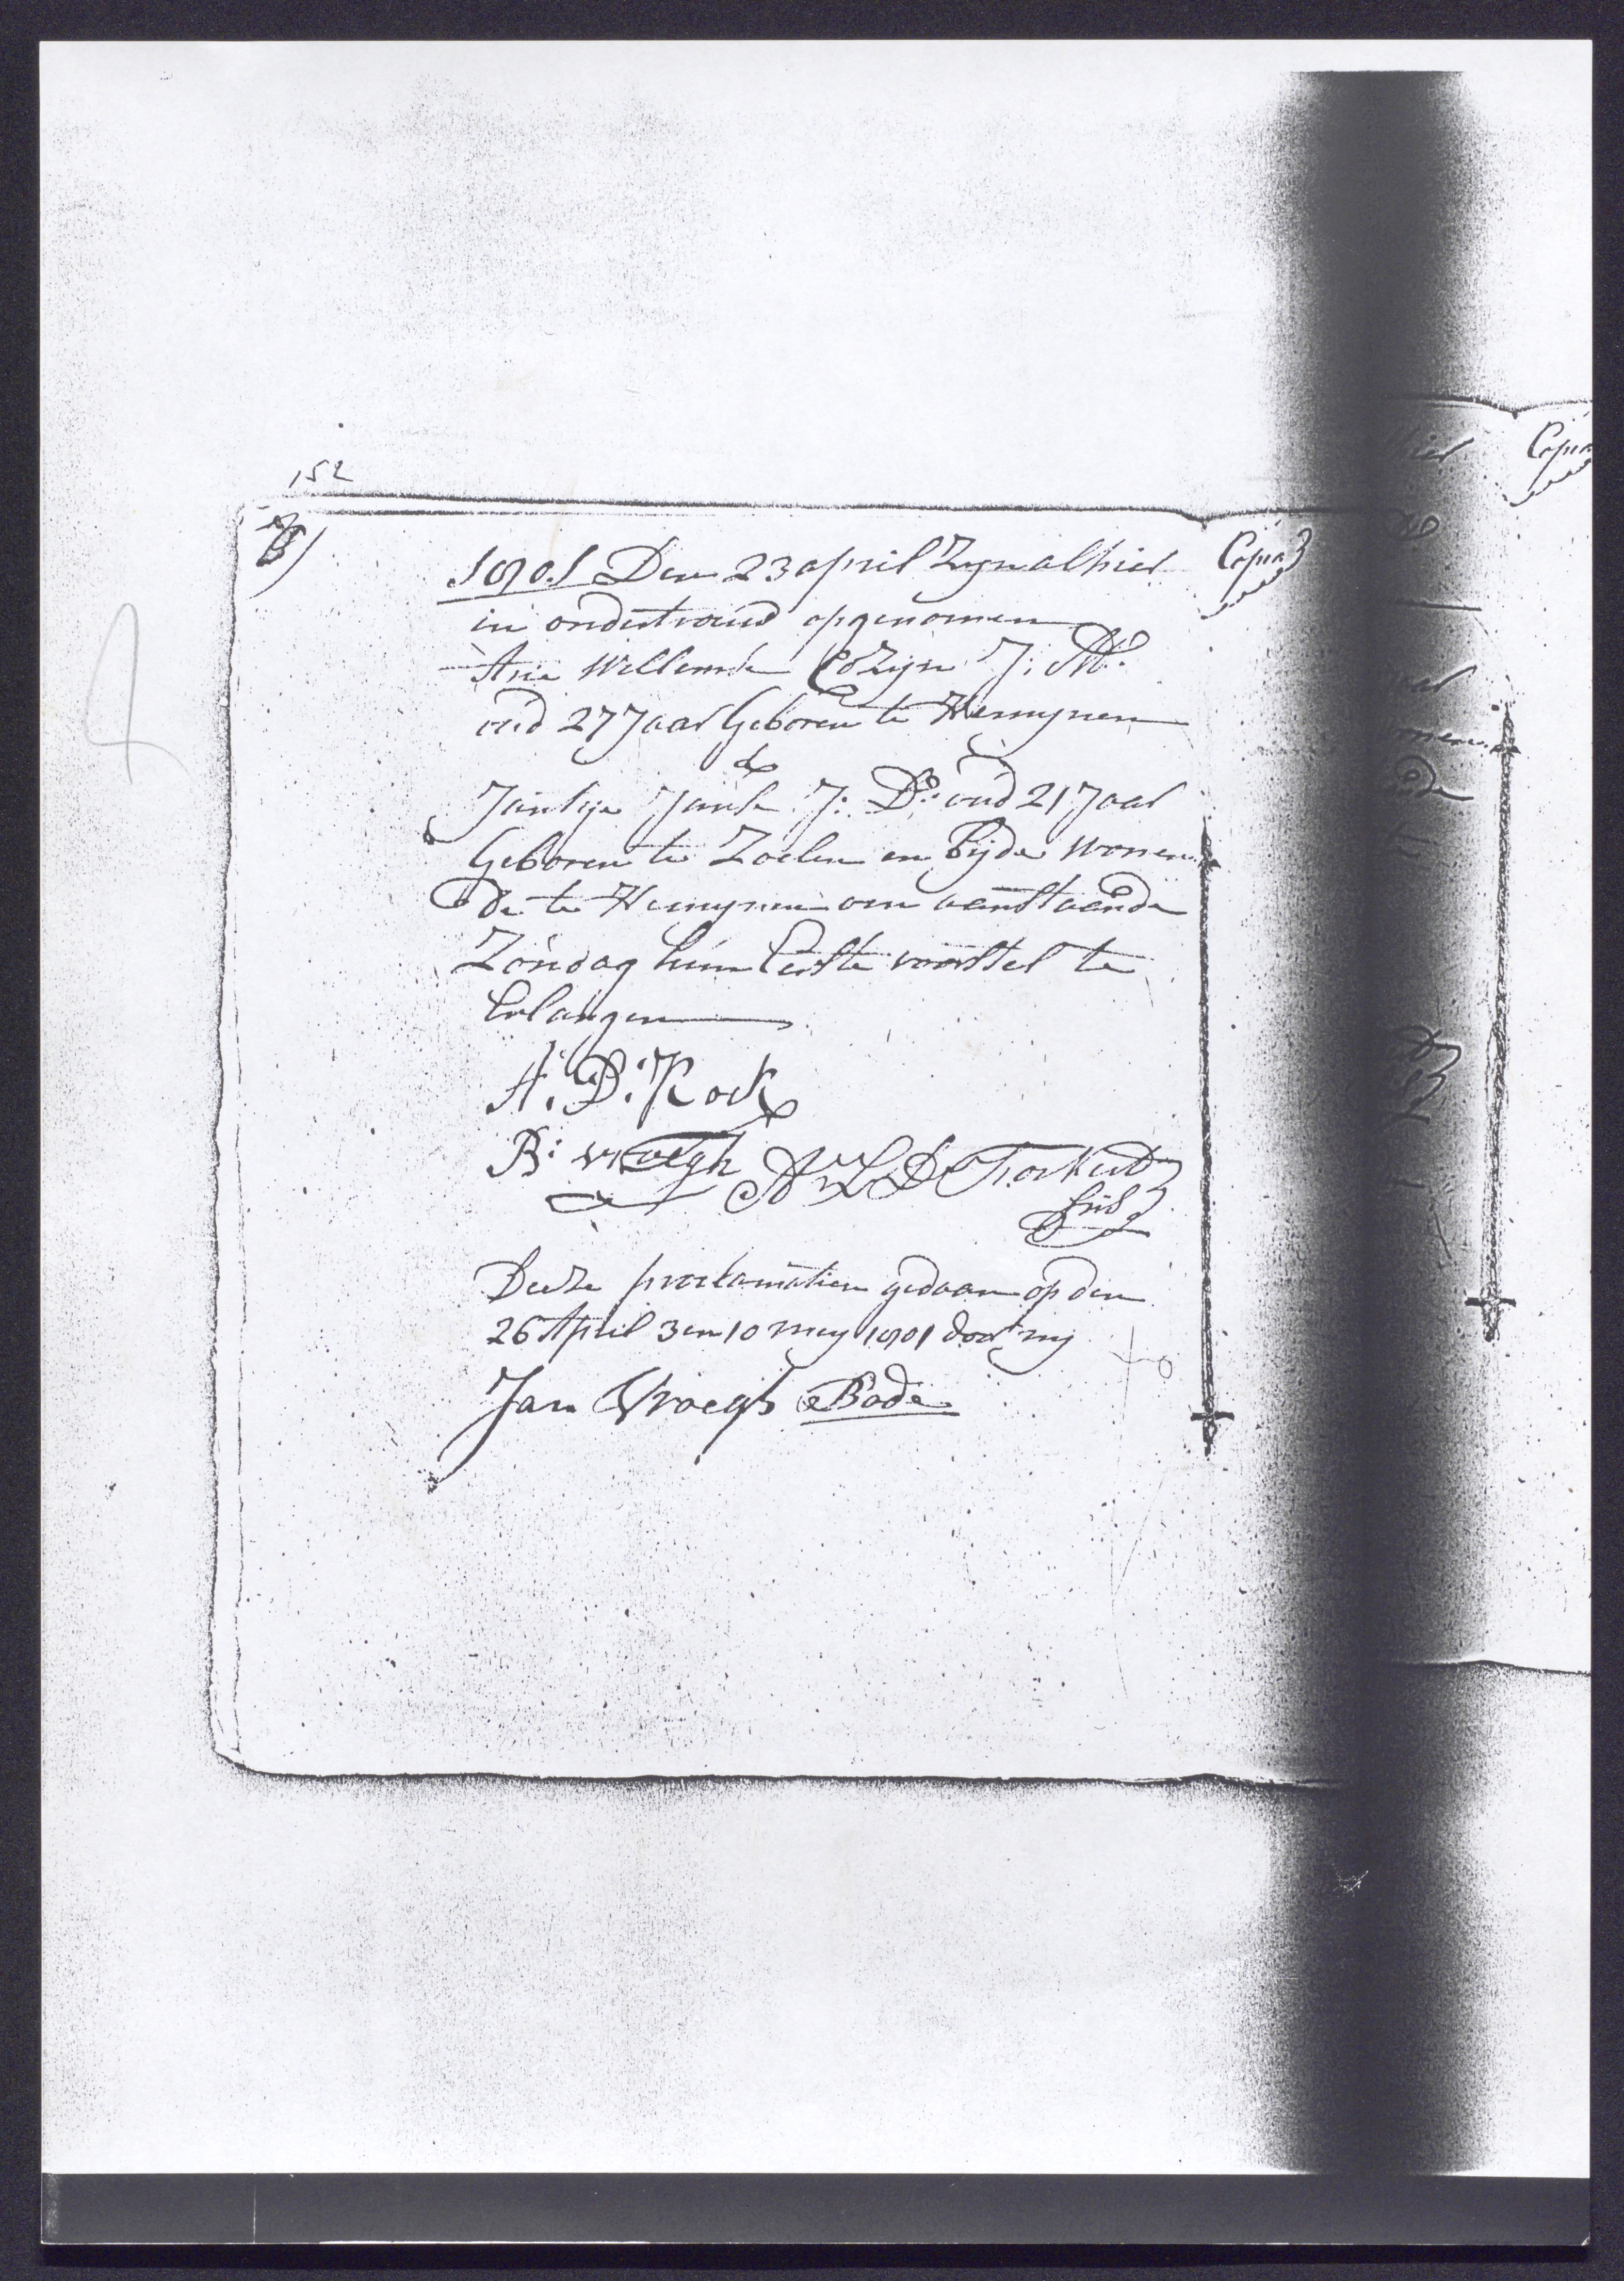 152
1801 Den 23 april Zyn alhier
in ondertroud opgenomen
Arie Willemse Cozijn J: M:
oud 27 Jaar Geboren te Hemynen
&
Jantije Janse J: D: oud 21 Jaar
Geboren te Zoelen en Bijde wonen
de te Hemynen om aanstaande
Zondag hun Eerste voorstel te
Erlangen
A: D: Kock
B: vroegh A V L D Torkud
Deese proclamatien gedaan op den
26 April 3 en 10 mey 1801 door my
Jan Vroegh Bode
Copia
Copia